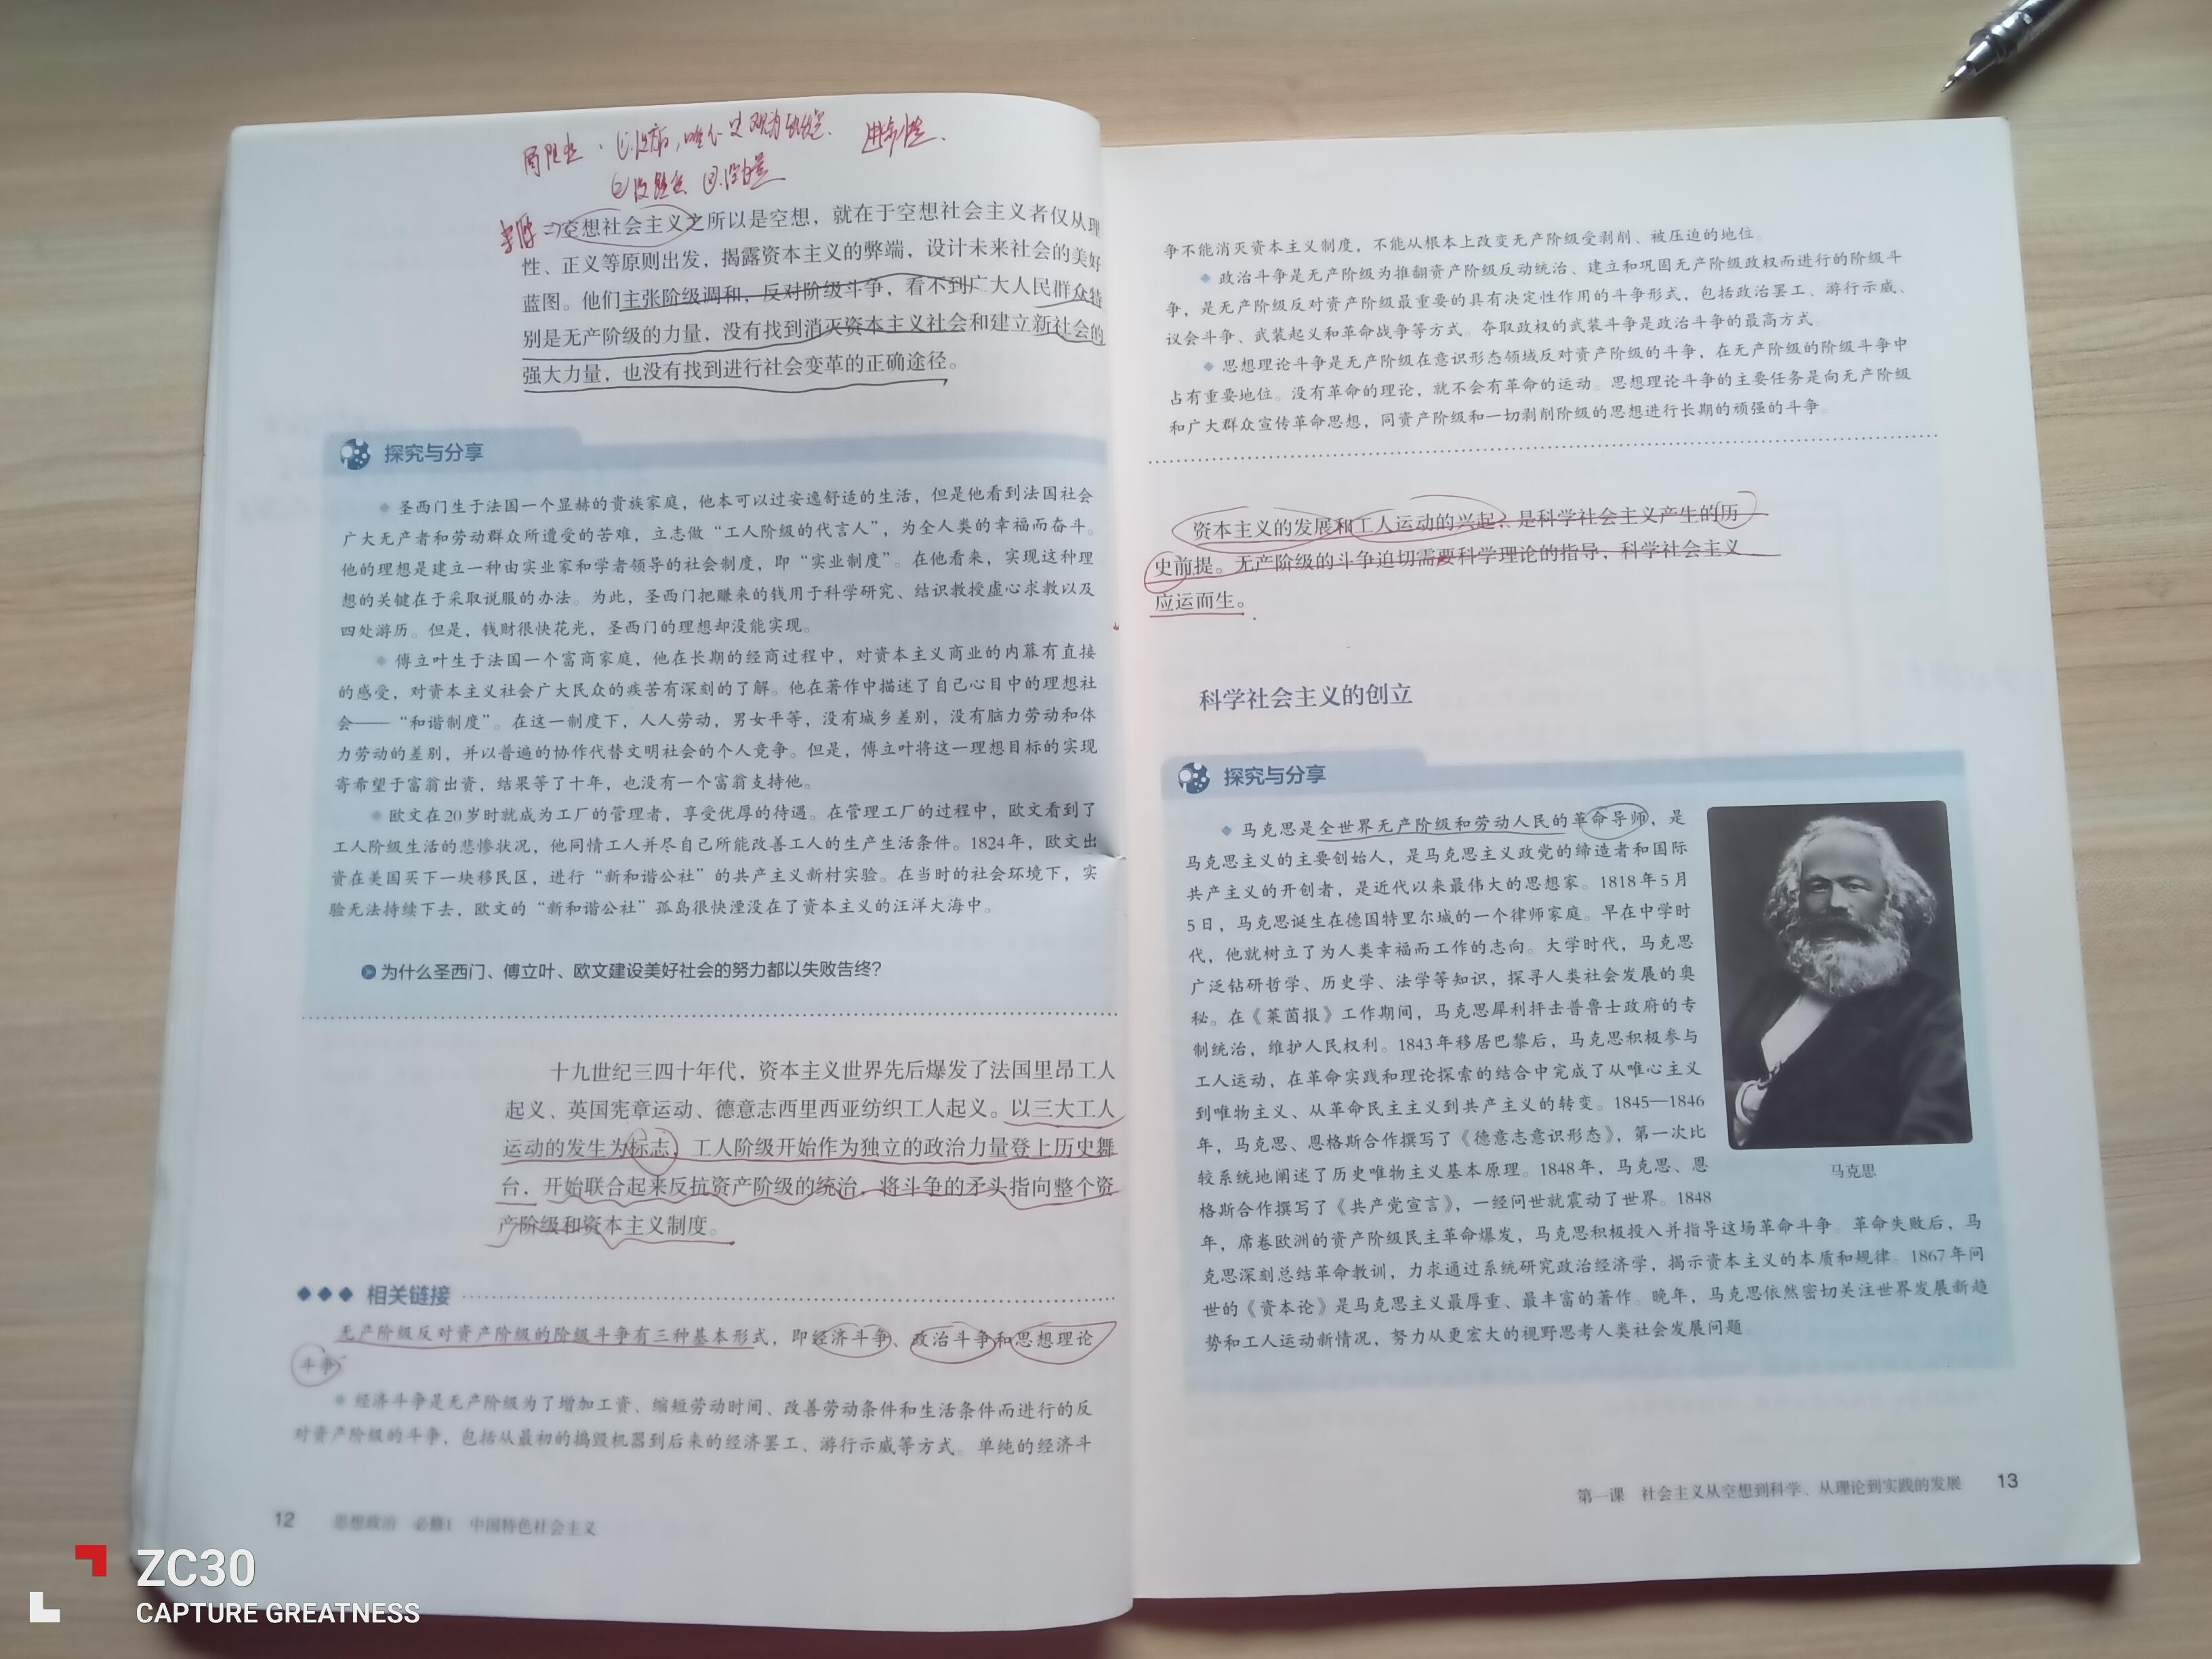 局限性：
进步性.
空想社会主义之所以是空想，就在于空想社会主义者仅从理
性、正义等原则出发，揭露资本主义的弊端，设计未来社会的美好
蓝图。他们主张阶级调和，反对阶级斗争，看不到广大人民群众特
别是无产阶级的力量，没有找到消灭资本主义社会和建立新社会的
强大力量，也没有找到进行社会变革的正确途径。
探究与分享
圣西门生于法国一个显赫的贵族家庭，他本可以过安逸舒适的生活，但是他看到法国社会
广大无产者和劳动群众所遭受的苦难，立志做“工人阶级的代言人”，为全人类的幸福而奋斗。
他的理想是建立一种由实业家和学者领导的社会制度，即“实业制度”。在他看来，实现这种理
想的关键在于采取说服的办法。为此，圣西门把赚来的钱用于科学研究、结识教授虚心求教以及
四处游历。但是，钱财很快花光，圣西门的理想却没能实现。
傅立叶生于法国一个富商家庭，他在长期的经商过程中，对资本主义商业的内幕有直接
的感受，对资本主义社会广大民众的疾苦有深刻的了解。他在著作中描述了自己心目中的理想社
会——“和谐制度”。在这一制度下，人人劳动，男女平等，没有城乡差别，没有脑力劳动和体
力劳动的差别，并以普遍的协作代替文明社会的个人竞争。但是，傅立叶将这一理想目标的实现
寄希望于富翁出资，结果等了十年，也没有一个富翁支持他。
欧文在20岁时就成为工厂的管理者，享受优厚的待遇。在管理工厂的过程中，欧文看到了
工人阶级生活的悲惨状况，他同情工人并尽自己所能改善工人的生产生活条件。1824年，欧文出
资在美国买下一块移民区，进行“新和谐公社”的共产主义新村实验。在当时的社会环境下，实
验无法持续下去，欧文的“新和谐公社”孤岛很快湮没在了资本主义的汪洋大海中。
为什么圣西门、傅立叶、欧文建设美好社会的努力都以失败告终？
十九世纪三四十年代，资本主义世界先后爆发了法国里昂工人
起义、英国宪章运动、德意志西里西亚纺织工人起义。以三大工人
运动的发生为标志，工人阶级开始作为独立的政治力量登上历史舞
台，开始联合起来反抗资产阶级的统治，将斗争的矛头指向整个资
产阶级和资本主义制度。
相关链接
无产阶级反对资产阶级的阶级斗争有三种基本形式，即经济斗争、政治斗争和思想理论
斗争。
经济斗争是无产阶级为了增加工资、缩短劳动时间、改善劳动条件和生活条件而进行的反
对资产阶级的斗争，包括从最初的捣毁机器到后来的经济罢工、游行示威等方式。单纯的经济斗
12 思想政治 必修1 中国特色社会主义
争不能消灭资本主义制度，不能从根本上改变无产阶级受剥削、被压迫的地位。
政治斗争是无产阶级为推翻资产阶级反动统治、建立和巩固无产阶级政权而进行的阶级斗
争，是无产阶级反对资产阶级最重要的具有决定性作用的斗争形式，包括政治罢工、游行示威、
议会斗争、武装起义和革命战争等方式。夺取政权的武装斗争是政治斗争的最高方式。
思想理论斗争是无产阶级在意识形态领域反对资产阶级的斗争，在无产阶级的阶级斗争中
占有重要地位。没有革命的理论，就不会有革命的运动。思想理论斗争的主要任务是向无产阶级
和广大群众宣传革命思想，同资产阶级和一切剥削阶级的思想进行长期的顽强的斗争。
资本主义的发展和工人运动的兴起，是科学社会主义产生的历
史前提。无产阶级的斗争迫切需要科学理论的指导，科学社会主义
应运而生。
科学社会主义的创立
探究与分享
马克思是全世界无产阶级和劳动人民的革命导师，是
马克思主义的主要创始人，是马克思主义政党的缔造者和国际
共产主义的开创者，是近代以来最伟大的思想家。1818年5月
5日，马克思诞生在德国特里尔城的一个律师家庭。早在中学时
代，他就树立了为人类幸福而工作的志向。大学时代，马克思
广泛钻研哲学、历史学、法学等知识，探寻人类社会发展的奥
秘。在《莱茵报》工作期间，马克思犀利抨击普鲁士政府的专
制统治，维护人民权利。1843年移居巴黎后，马克思积极参与
工人运动，在革命实践和理论探索的结合中完成了从唯心主义
到唯物主义、从革命民主主义到共产主义的转变。1845—1846
年，马克思、恩格斯合作撰写了《德意志意识形态》，第一次比
较系统地阐述了历史唯物主义基本原理。1848年，马克思、恩
格斯合作撰写了《共产党宣言》，一经问世就震动了世界。1848
年，席卷欧洲的资产阶级民主革命爆发，马克思积极投入并指导这场革命斗争。革命失败后，马
克思深刻总结革命教训，力求通过系统研究政治经济学，揭示资本主义的本质和规律。1867年问
世的《资本论》是马克思主义最厚重、最丰富的著作。晚年，马克思依然密切关注世界发展新趋
势和工人运动新情况，努力从更宏大的视野思考人类社会发展问题。
马克思
第一课 社会主义从空想到科学、从理论到实践的发展 13
ZC30
CAPTURE GREATNESS